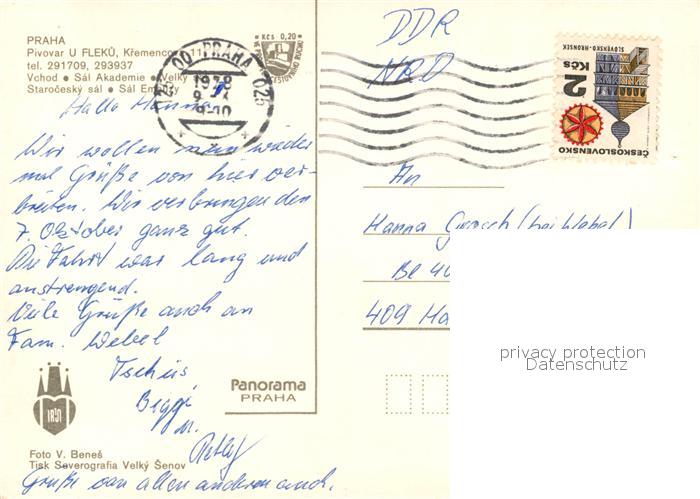 PRAHA
Pivovar U FLEKŮ, Křemencova 11
tel. 291709, 293937
Vchod • Sál Akademie • Velký
Staročeský sál • Sál Emauzy
Kčs 0,20
PRAHA 025
1978
DDR
NRD
2 Kčs
SLOVENSKO-HRONSEK
ČESKOSLOVENSKO
Hallo Hanna
Wir wollen nun wieder
mal Grüße von hier ver-
breiten. Wir verbringen den
7. Oktober ganz gut.
Die Fahrt war lang und
anstrengend.
Viele Grüße auch an
Fam. Webel
Tschüs
u.
Grüße von allen anderen auch.
An
Hanna Grosch (bei Webel)
Bl 40
409 Ha
Panorama
PRAHA
Foto V. Beneš
Tisk Severografia Velký Šenov
privacy protection
Datenschutz